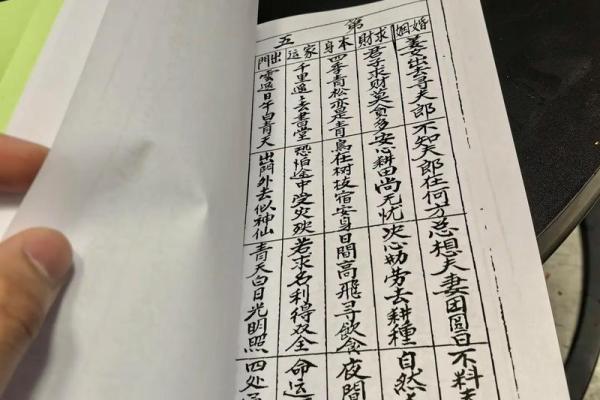 第五
婚姻
姜女出去寻夫郎 不知夫郎在何方 总想夫妻团圆日 不料
求財
君子求财莫贪多 安心耕田尚无忧 决心勤劳去耕種 自然
本身
四季青松亦是青 鳥在树枝宿安身 日間高飛寻飲食 夜間
家运
千里遥々去書堂 恐怕途中受災殃 若求名利得双全 命运
出門
雲遮日午白青天 出門外去似神仙 青天白日光明照 四处